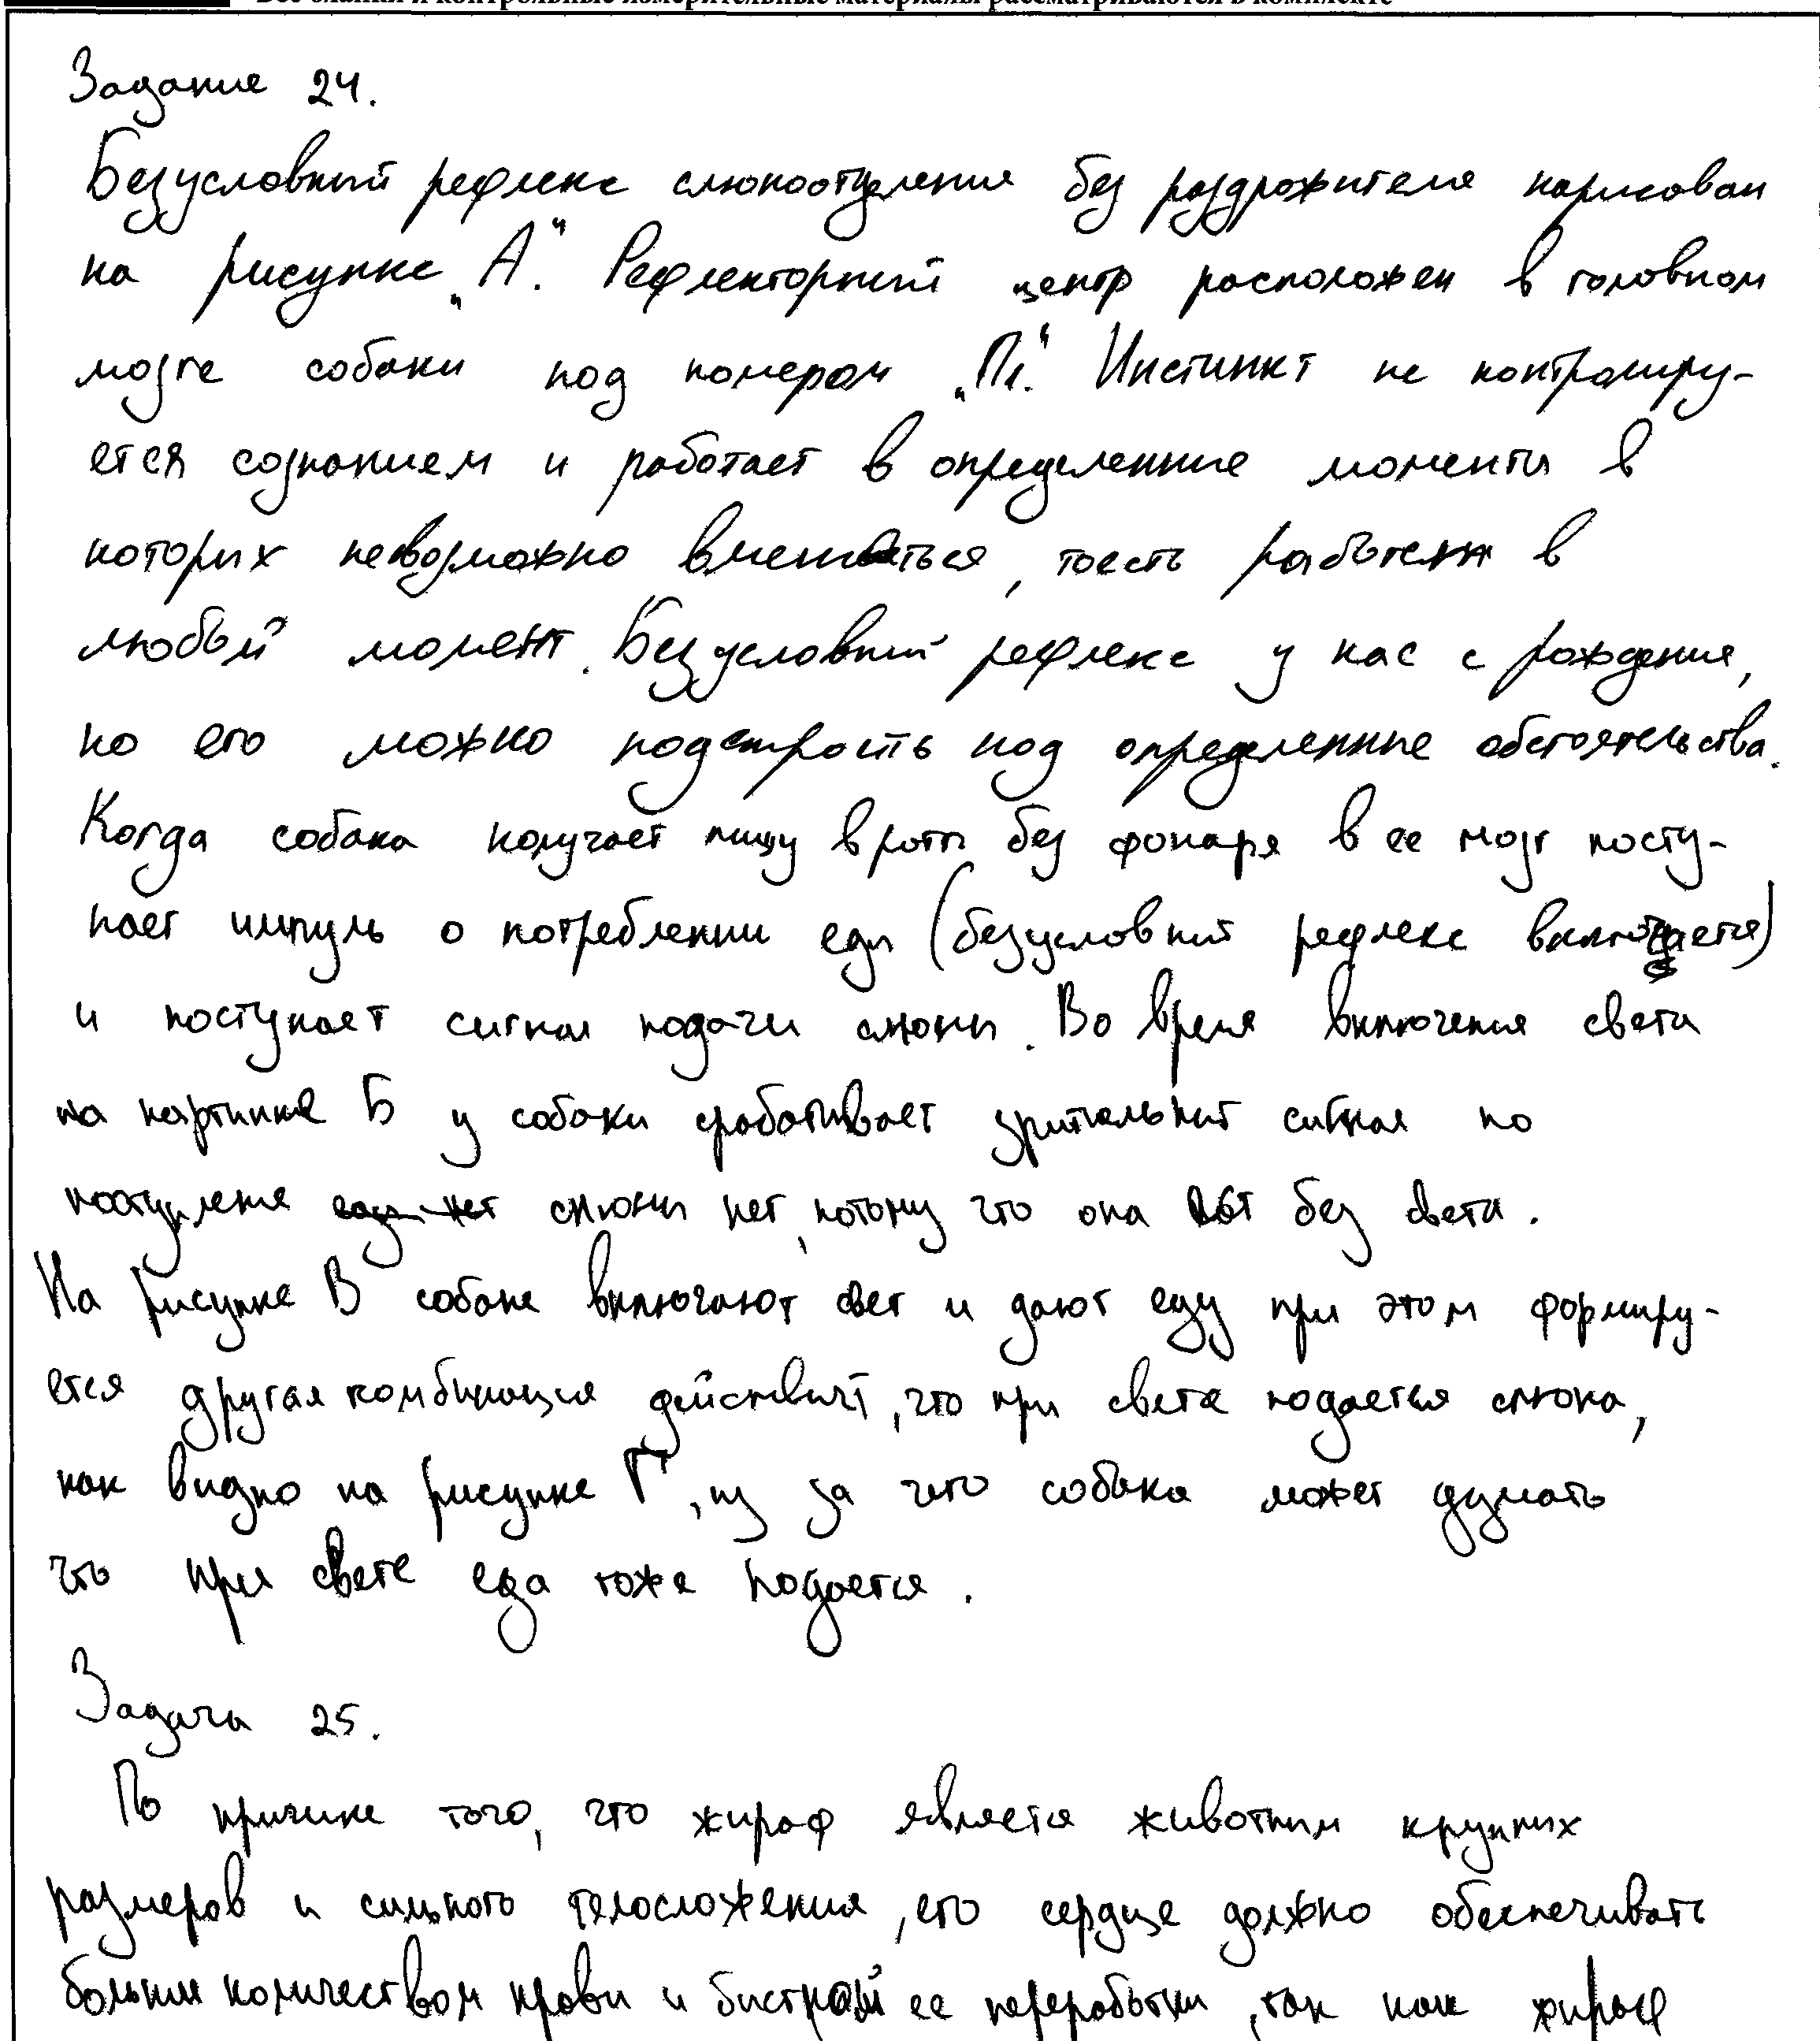 Все бланки и контрольные измерительные материалы рассматриваются в комплекте
Задание 24.
Безусловный рефлекс слюноотделения без раздражителя нарисован
на рисунке „А“. Рефлекторный центр расположен в головном
мозге собаки под номером „П1“. Инстинкт не контролиру-
ется сознанием и работает в определенные моменты в
которых невозможно вмешаться, тоесть работает в
любой момент. Безусловный рефлекс у нас с рождения,
но его можно подстроить под определенные обстоятельства.
Когда собака получает пищу в рот без фонаря в ее мозг посту-
пает импуль о потреблении еды (безусловный рефлекс включается)
и поступает сигнал подачи слюны. Во время включения света
на картинке Б у собаки срабатывает зрительный сигнал но
поступления слюны нет, потому что она ест без света.
На рисунке В собаке включают свет и дают еду при этом формиру-
ется другая комбинация действий, что при свете подается слюна,
как видно на рисунке Г, из за чего собака может думать
что при свете еда тоже подается.
Задача 25.
По причине того, что жираф является животным крупных
размеров и сильного телосложения, его сердце должно обеспечивать
большим количеством крови и быстрой ее переработки, так как жираф